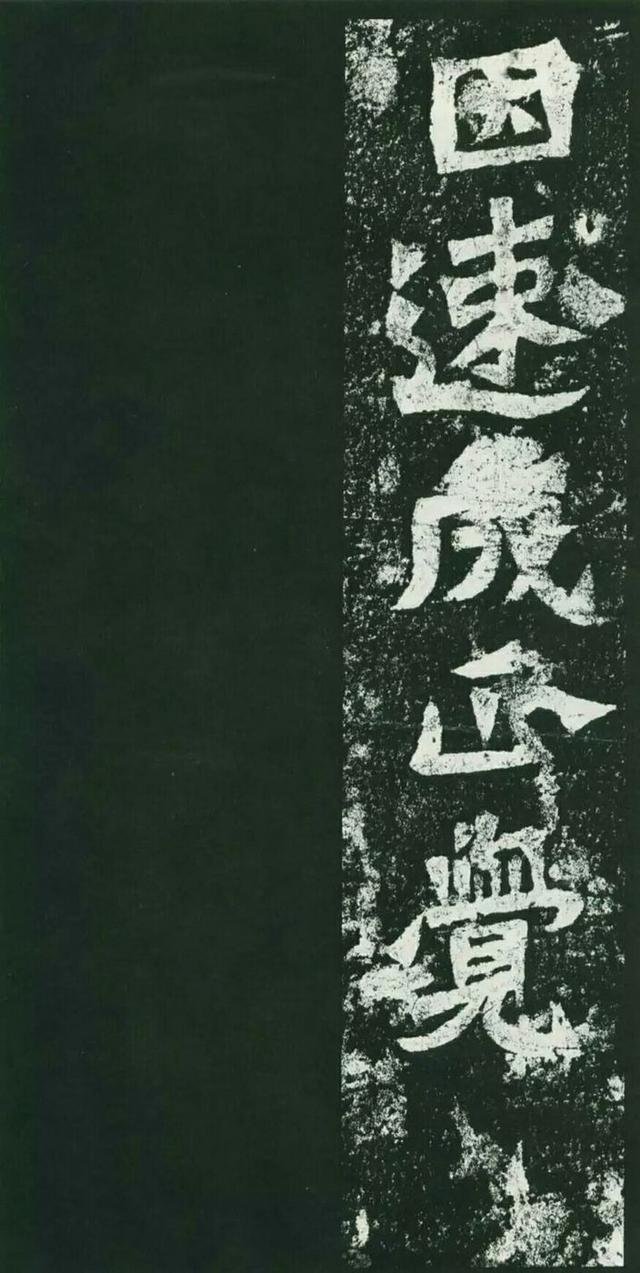 因速成正覺